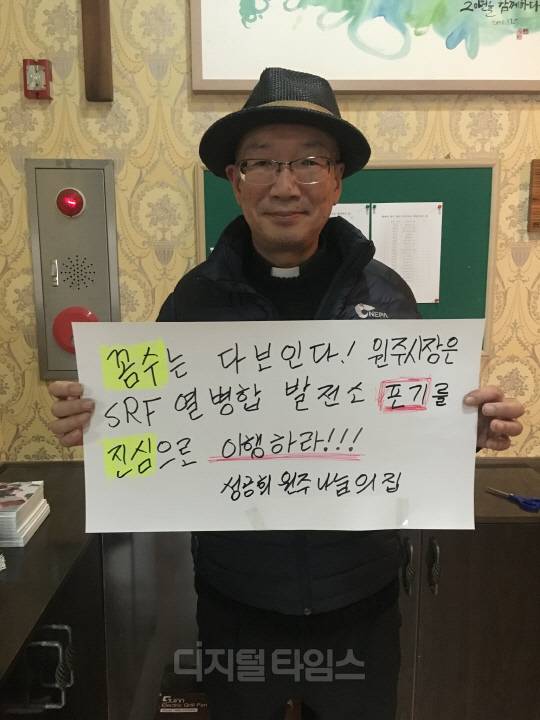 20년을 함께하다
NEPA
꼼수는 다보인다! 원주시장은
SRF 열병합 발전소 포기를
진심으로 이행하라!!!
성공회 원주 나눔의 집
디지털타임스
Electric Grill Pan